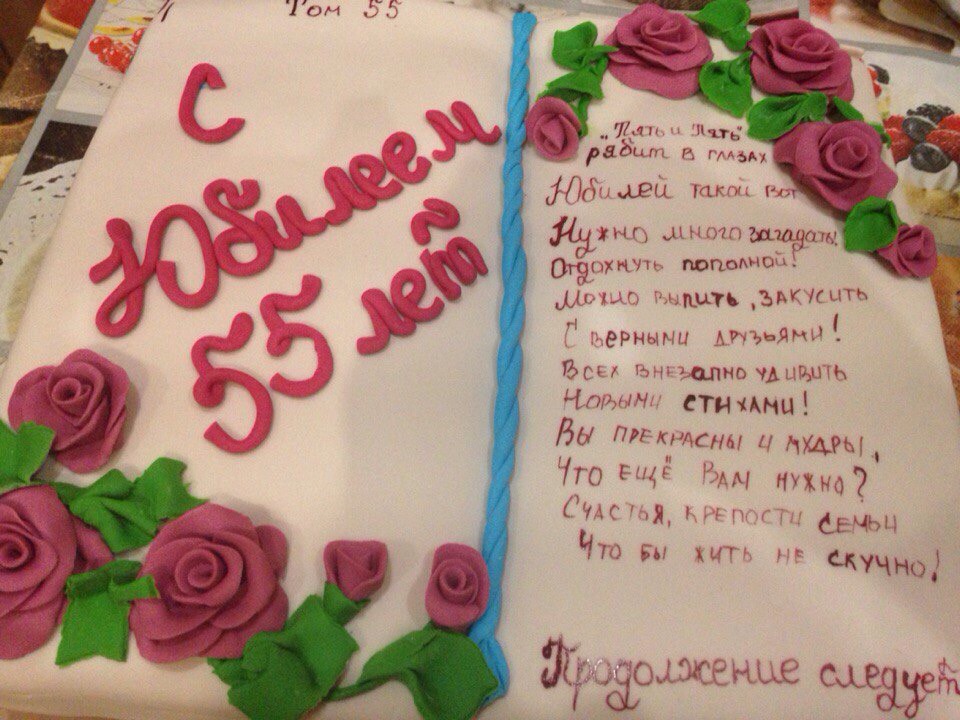 Том 55
С
Юбилеем
55 лет
„Пять и Пять"
рябит в глазах
Юбилей такой вот
Нужно много загадать
Отдохнуть пополной!
Можно выпить, закусить
С верными друзьями!
Всех внезапно удивить
Новыми стихами!
Вы прекрасны и мудры,
Что ещё Вам нужно?
Счастья, крепости семьи
Что бы жить не скучно!
Продолжение следует